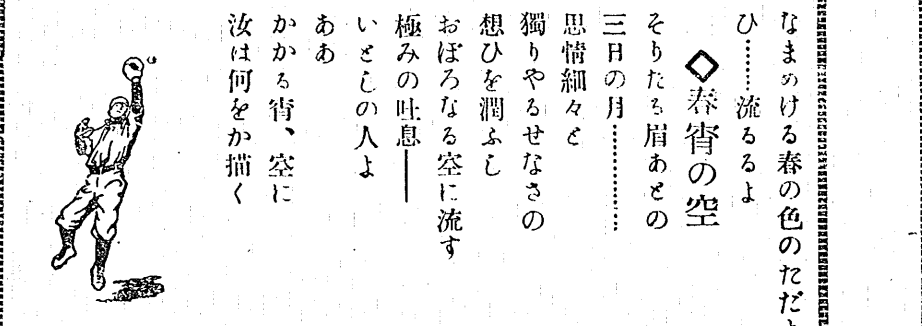 なまめける春の色のただよ
ひ………流るるよ
◇春宵の空
そりたる眉あとの
三日の月……………
思情細々と
獨りやるせなさの
想ひを潤ふし
おぼろなる空に流す
極みの吐息──
いとしの人よ
ああ
かかる宵、空に
汝は何をか描く